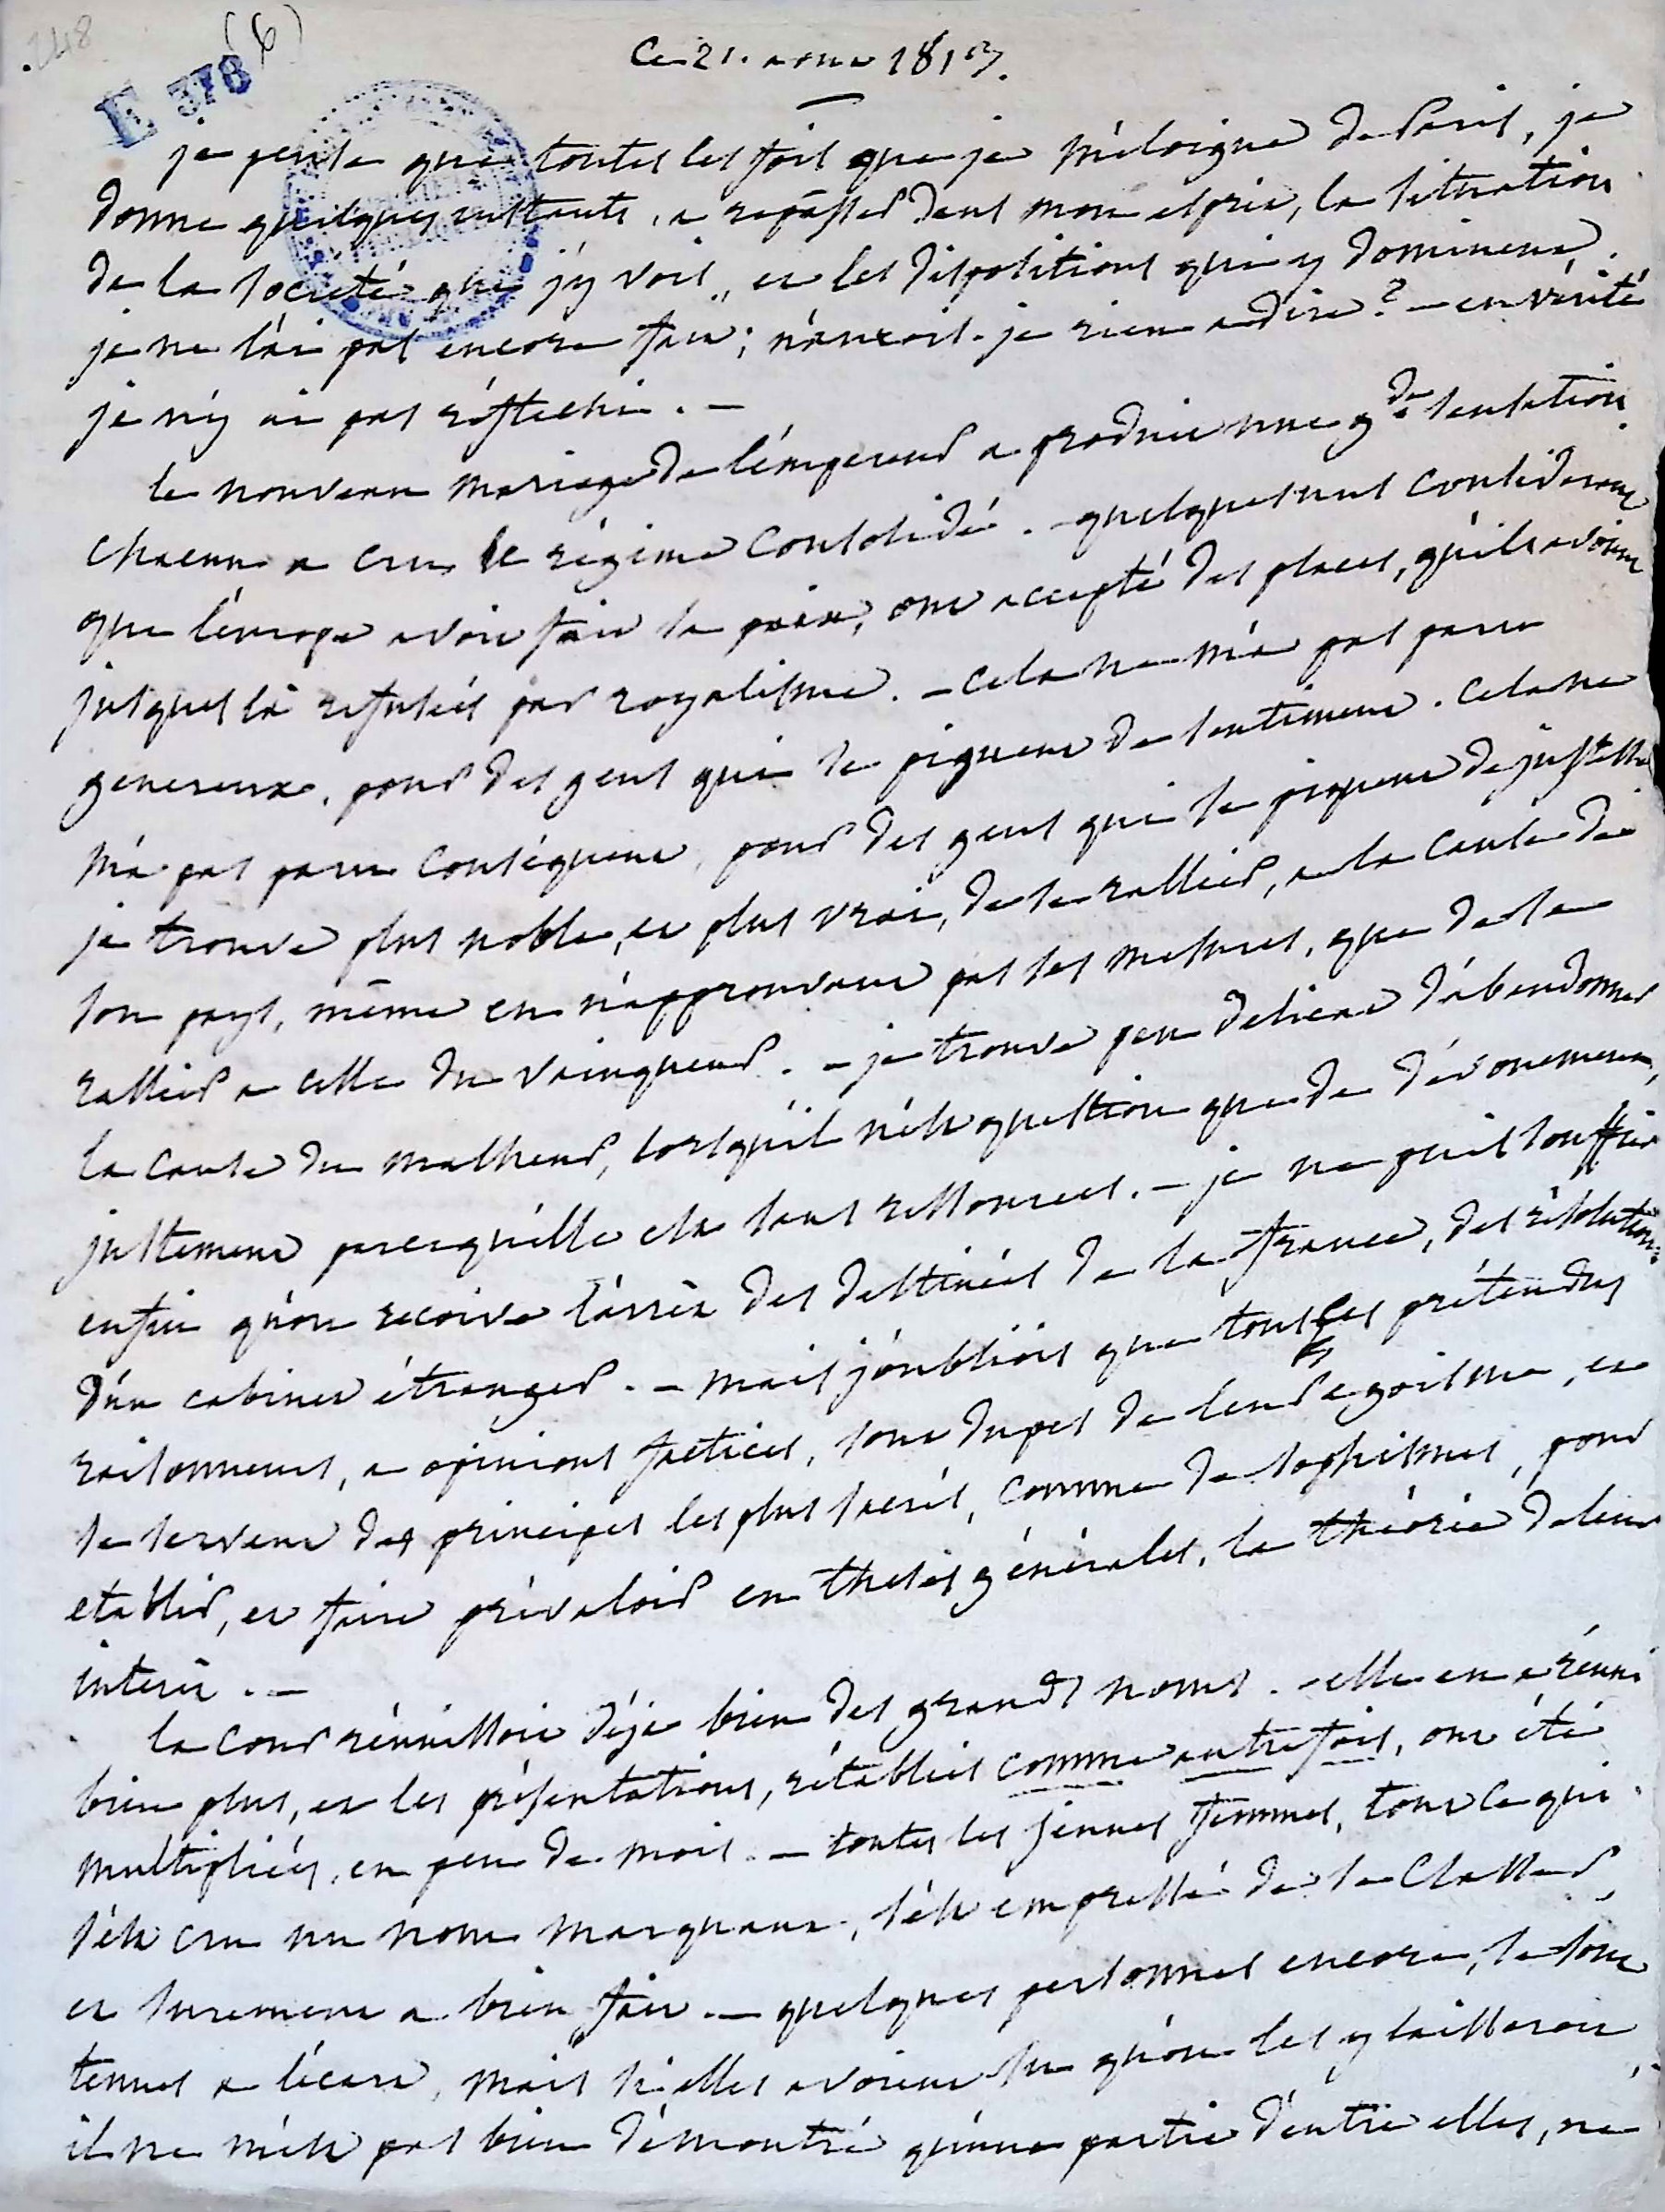 248
(6)
E 378
Ce 21. aout 1813.
je pense que toutes les fois que je m'éloigne de Paris, je
donne quelques instants, a repasser dans mon esprit, la situation
de la societé que j'y vois, et les dispositions qui y dominent.
je ne l'ai pas encore fait ; n'aurois-je rien a dire ? - en vérité
je n'y ai pas réflechi. -
le nouveau mariage de l'émpereur a produit une gde sensation.
chacun a cru le régime consolidé. - quelques uns considerant
que l'éurope avoit fait la paix, ont accepté des places, qu'ils avoient
jusques là refusées par royalisme. - cela ne m'a pas paru
genereux, pour des gens qui se piquent de sentiment. cela ne
m'a pas paru conséquent, pour des gens qui se piquent de justesse
je trouve plus noble, et plus vrai, de se rallier, a la cause de
son pays, même en n'approuvant pas ses mesures, que de se
rallier a celle du vainqueur. - je trouve peu delicat d'abandonner
la cause du malheur, lorsqu'il n'est question que de dévouement,
justement parcequ'elle est sans ressources. - je ne puis souffrir
enfin qu'on recoive l'arrèt des destinées de la france, des résolutions
d'un cabinet étranger. - mais j'oubliois que tous ces prétendus
raisonneurs, a opinions factices, sont dupes de leur egoisme, et
se servent des principes les plus sacrés, comme de sophismes, pour
etablir, et faire prévaloir en theses générales, la théorie de leur
interèt. -
la cour réunissoit déja bien des grands noms. - elle en a réuni
bien plus, et les présentations, rétablies comme autrefois, ont été
multipliées, en peu de mois. - toutes les jeunes femmes, tout ce qui
s'est cru un nom marquant, s'est empressé de se classer,
et surement a bien fait. - quelques personnes encore, se sont
tenues a l'écart, mais si elles avoient su qu'on les y laisseroit,
il ne m'est pas bien démontré qu'une partie d'entre elles, ne